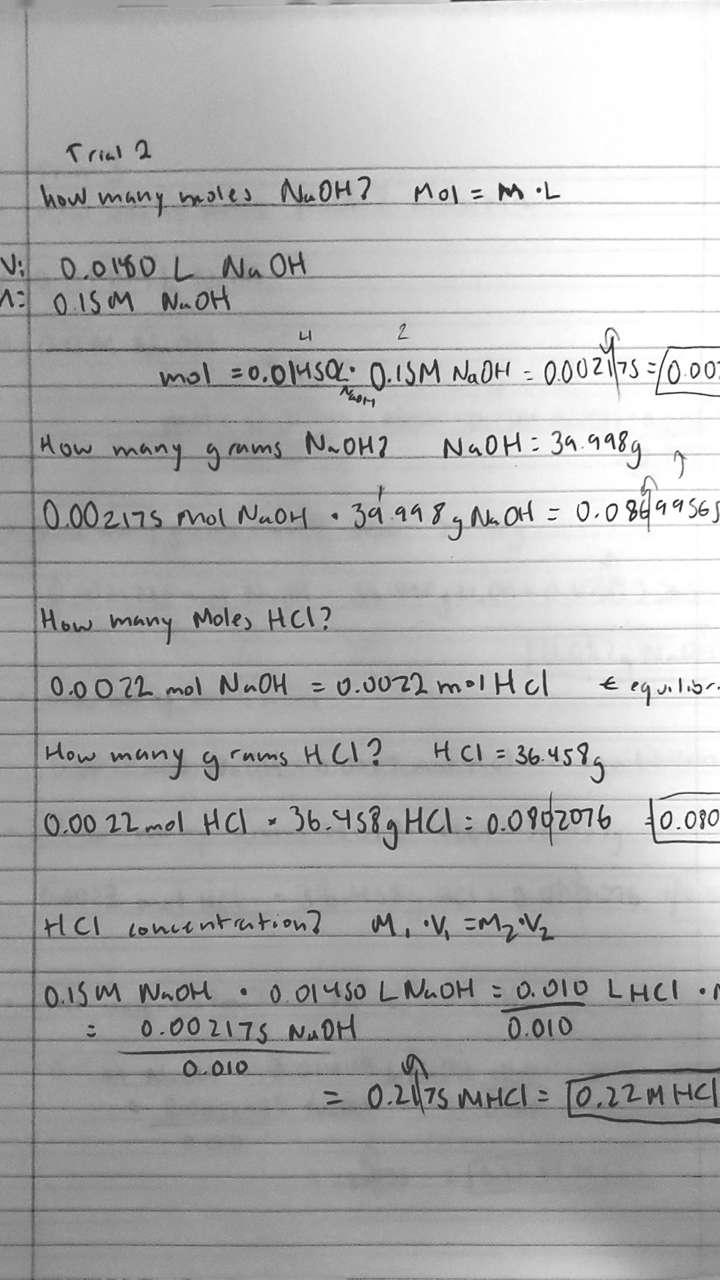 Trial 2
how many moles NaOH? Mol = M · L
V: 0.0180 L NaOH
0.15M NaOH
4 2
mol = 0.01450L · 0.15M NaOH = 0.002175 = 0.00
NaOH
How many grams NaOH? NaOH = 39.998g
0.002175 mol NaOH · 39.998g NaOH = 0.08699565
How many Moles HCl?
0.0022 mol NaOH = 0.0022 mol HCl ← equilibr
How many grams HCl? HCl = 36.458g
0.0022 mol HCl × 36.458g HCl = 0.0802076 = 0.080
HCl concentration? M₁ · V₁ = M₂ · V₂
0.15M NaOH · 0.01450 L NaOH = 0.010 L HCl ·
= 0.002175 NaOH 0.010
0.010
= 0.2175 MHCl = 0.22M HCl